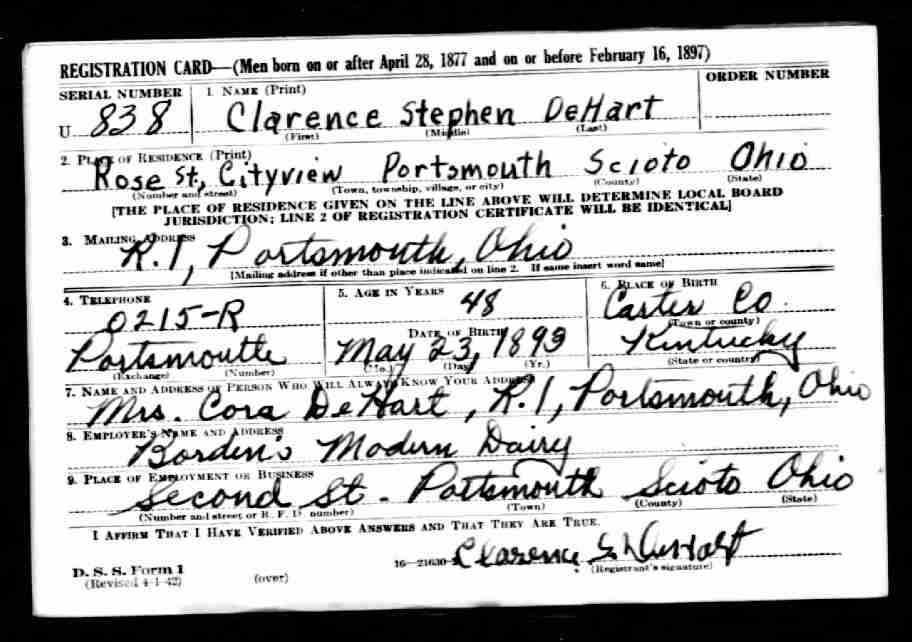 REGISTRATION CARD—(Men born on or after April 28, 1877 and on or before February 16, 1897)
SERIAL NUMBER 1. NAME (Print) ORDER NUMBER
U 838 Clarence Stephen DeHart
(First) (Middle) (Last)
2. PLACE OF RESIDENCE (Print)
Rose St, Cityview Portsmouth Scioto Ohio
(Number and street) (Town, township, village, or city) (County) (State)
[THE PLACE OF RESIDENCE GIVEN ON THE LINE ABOVE WILL DETERMINE LOCAL BOARD
JURISDICTION; LINE 2 OF REGISTRATION CERTIFICATE WILL BE IDENTICAL]
3. MAILING ADDRESS
R.1, Portsmouth, Ohio
[Mailing address if other than place indicated on line 2. If same insert word same]
4. TELEPHONE 5. AGE IN YEARS 6. PLACE OF BIRTH
0215-R 48 Carter Co.
(Town or county)
DATE OF BIRTH
Portsmouth May 23, 1893 Kentucky
(Exchange) (Number) (Mo.) (Day) (Yr.) (State or country)
7. NAME AND ADDRESS OF PERSON WHO WILL ALWAYS KNOW YOUR ADDRESS
Mrs. Cora DeHart, R.1, Portsmouth, Ohio
8. EMPLOYER'S NAME AND ADDRESS
Borden's Modern Dairy
9. PLACE OF EMPLOYMENT OR BUSINESS
Second St. Portsmouth Scioto Ohio
(Number and street or R. F. D. number) (Town) (County) (State)
I AFFIRM THAT I HAVE VERIFIED ABOVE ANSWERS AND THAT THEY ARE TRUE.
16—21630 Clarence S DeHart
D. S. S. Form 1 (Registrant's signature)
(Revised 4-1-42) (over)